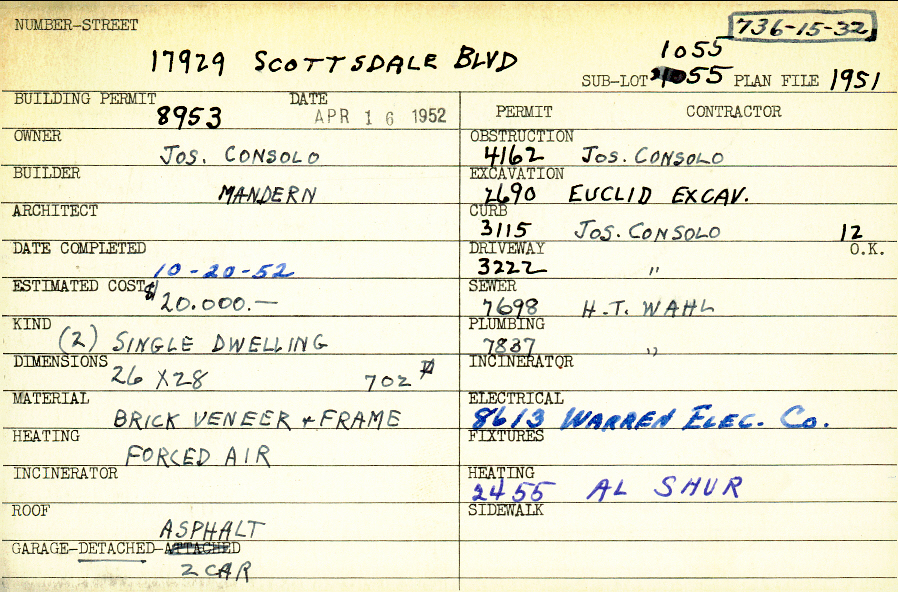 NUMBER-STREET
736-15-32
17929 SCOTTSDALE BLVD
1055
SUB-LOT 1055 PLAN FILE 1951
BUILDING PERMIT DATE
8953 APR 16 1952
OWNER
JOS. CONSOLO
BUILDER
MANDERN
ARCHITECT
DATE COMPLETED
10-20-52
ESTIMATED COST
$20.000.—
KIND
(2) SINGLE DWELLING
DIMENSIONS
26 X 28 702
MATERIAL
BRICK VENEER + FRAME
HEATING
FORCED AIR
INCINERATOR
ROOF
ASPHALT
GARAGE-DETACHED-ATTACHED
2 CAR
PERMIT CONTRACTOR
OBSTRUCTION
4162 JOS. CONSOLO
EXCAVATION
2690 EUCLID EXCAV.
CURB
3115 JOS. CONSOLO 12
DRIVEWAY O.K.
3222 "
SEWER
7698 H.T. WAHL
PLUMBING
7837 "
INCINERATOR
ELECTRICAL
8613 WARREN ELEC. CO.
FIXTURES
HEATING
2455 AL SHUR
SIDEWALK